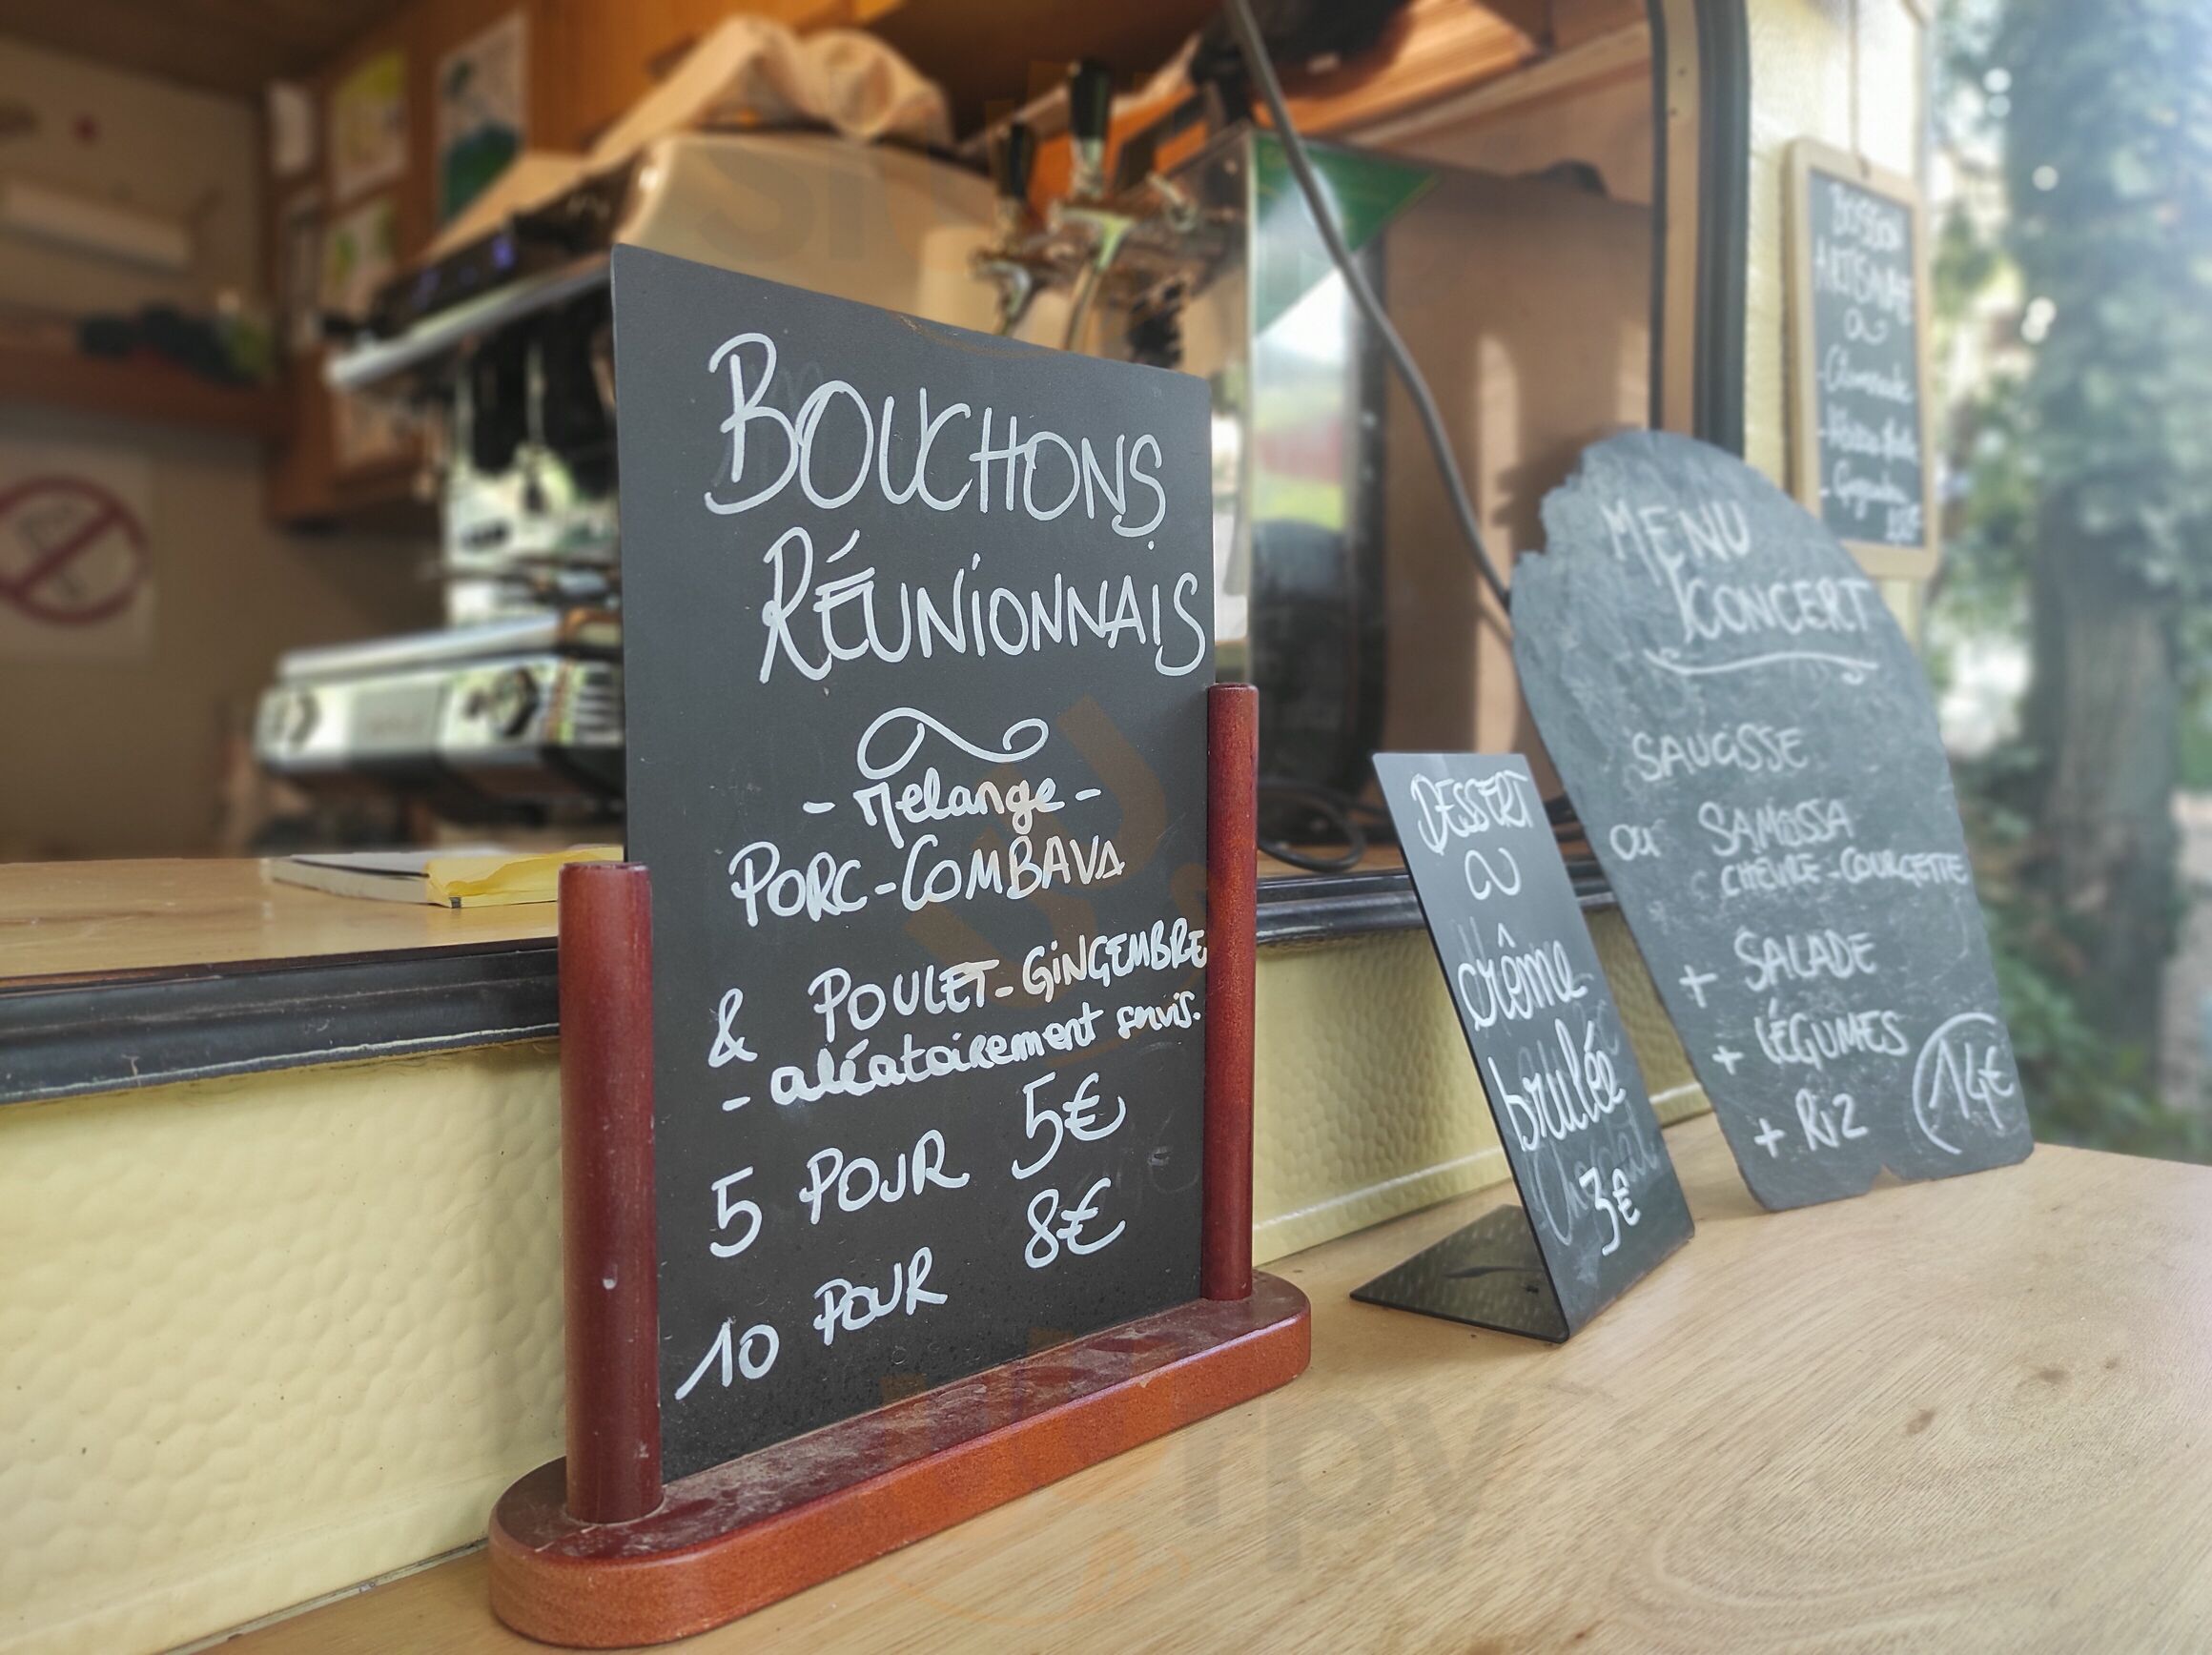 BOUCHONS
RÉUNIONNAIS
- Mélange -
PORC-COMBAVA
& POULET-GINGEMBRE
- aléatoirement servis.
5 POUR 5€
10 POUR 8€
DESSERT
crème
brulée
3€
MENU
CONCERT
SAUCISSE
ou SAMOSSA
CHEVRE-COURGETTE
+ SALADE
+ LÉGUMES
+ RIZ
14€
BOISSON
ARTISANALE